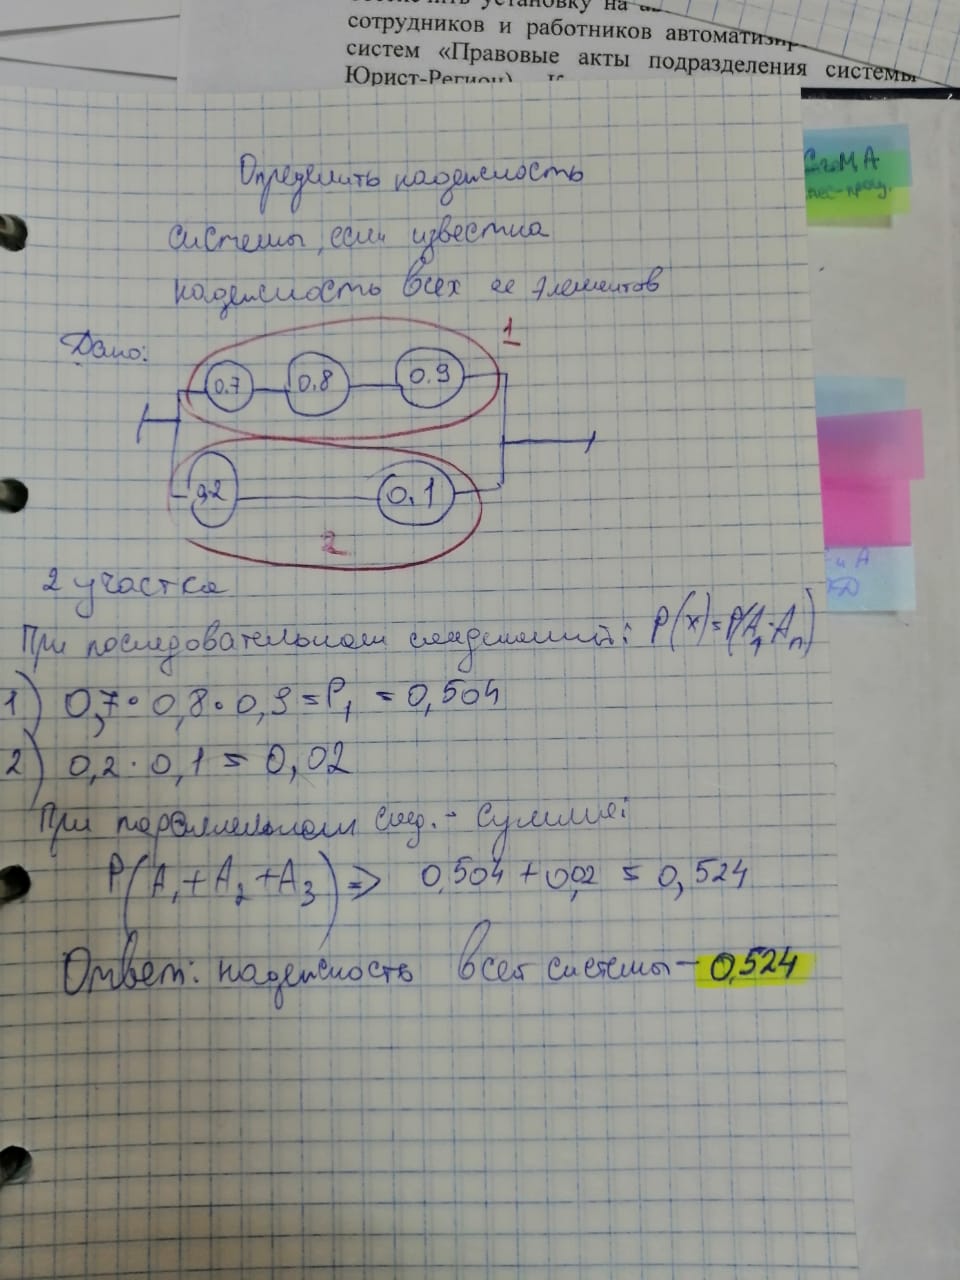 сотрудников и работников
систем «Правовые акты подразделения системы
Юрист-Регион).
Определить надежность
системы, если известна
надежность всех ее элементов
Дано:
1
0.7 0.8 0.9
0,2 0,1
2
2 участка
При последовательном соединений: P(x)=P(A₁·Aₙ)
1) 0,7·0,8·0,9=P₁ = 0,504
2) 0,2·0,1=0,02
При параллельном соед. - сумма:
P(A₁+A₂+A₃)=> 0,504+0,02=0,524
Ответ: надежность всей системы - 0,524